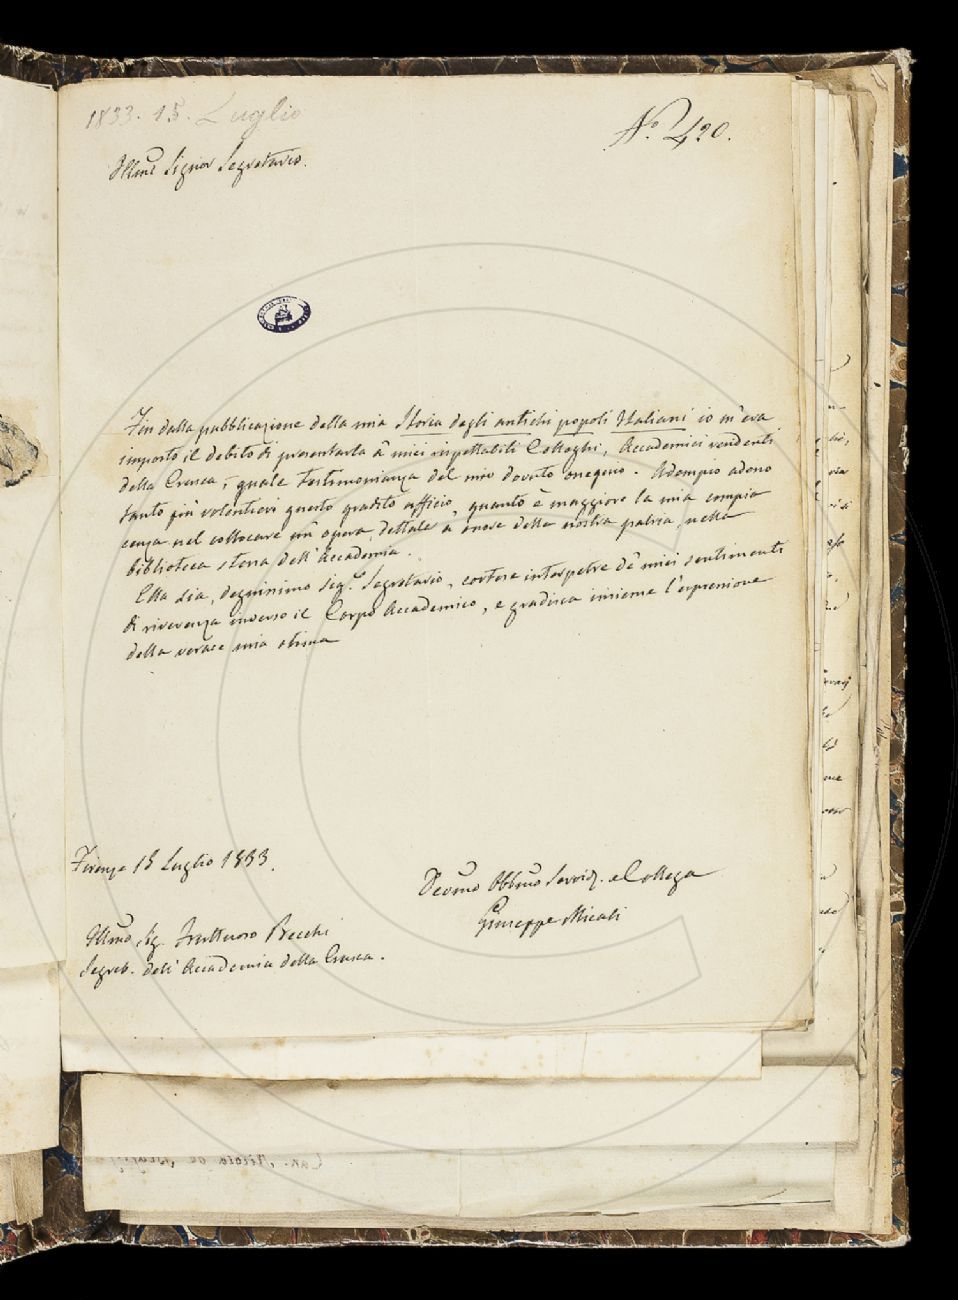 1833. 15. Luglio
N.º 420.
Illmo Signor Segretario.
Fin dalla pubblicazione della mia Storia degli antichi popoli Italiani io m'era
imposto il debito di presentarla a' miei rispettabili Colleghi, Accademici residenti
della Crusca, quale testimonianza del mio dovuto ossequio. Adempio adesso
tanto più volentieri questo gradito ufficio, quanto è maggiore la mia compia
cenza nel collocare un' opera, dettata a onore della nostra patria, nella
biblioteca stessa dell' Accademia.
Ella sia, degnissimo Sig.r Segretario, cortese interpetre de' miei sentimenti
di riverenza inverso il Corpo Accademico, e gradisca insieme l'espressione
della verace mia stima
Firenze 15 Luglio 1833.
Devmo Obbmo Servid. e Collega
Giuseppe Micali
Illmo Sig. Fruttuoso Becchi
Segret. dell' Accademia della Crusca.